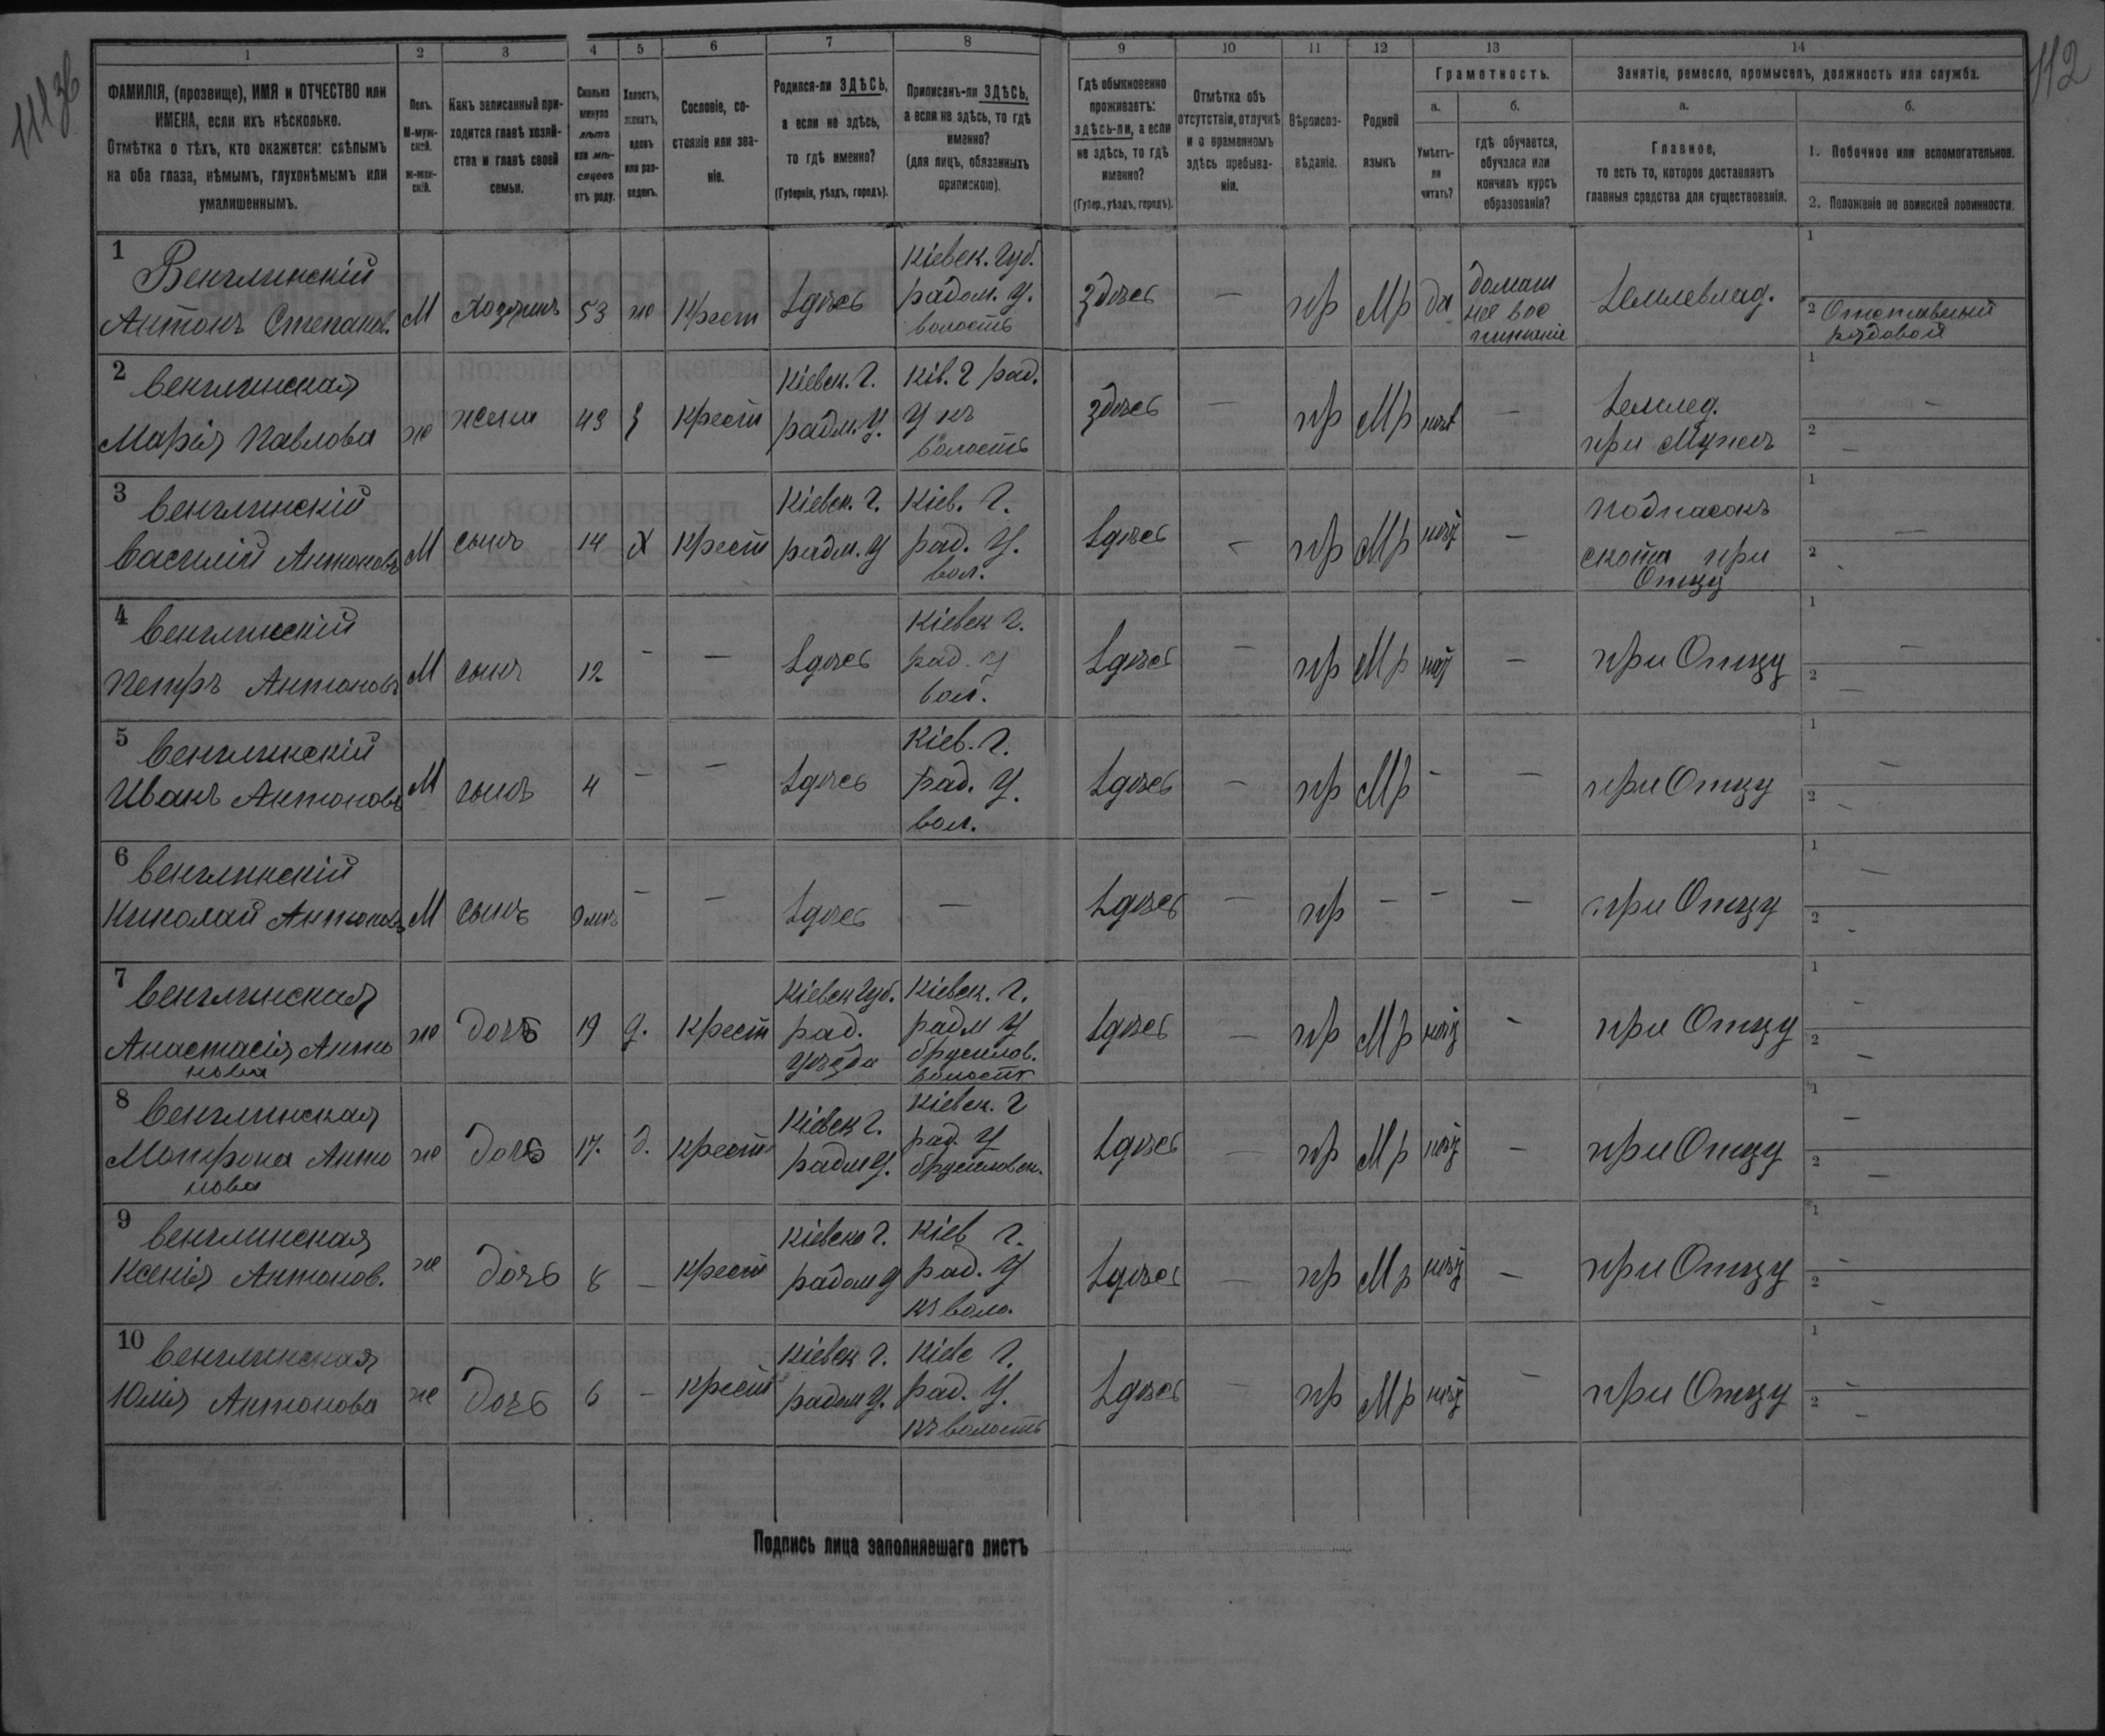 112
1
2
3
4
5
6
7
8
9
10
11
12
13
14
ФАМИЛІЯ, (прозвище), ИМЯ и ОТЧЕСТВО или
ИМЕНА, если ихъ нѣсколько.
Отмѣтка о тѣхъ, кто окажется: слѣпымъ
на оба глаза, нѣмымъ, глухонѣмымъ или
умалишеннымъ.
Полъ.
М-муж-
ской.
Ж-жен-
скій.
Какъ записанный при-
ходится главѣ хозяй-
ства и главѣ своей
семьи.
Сколько
минуло
лѣтъ
или мѣ-
сяцевъ
отъ роду.
Холостъ,
женатъ,
вдовъ
или раз-
веденъ.
Сословіе, со-
стояніе или зва-
ніе.
Родился-ли ЗДѢСЬ,
а если не здѣсь,
то гдѣ именно?
(Губернія, уѣздъ, городъ).
Приписанъ-ли ЗДѢСЬ,
а если не здѣсь, то гдѣ
именно?
(для лицъ, обязанныхъ
припискою).
Гдѣ обыкновенно
проживаетъ:
здѣсь-ли, а если
не здѣсь, то гдѣ
именно?
(Губер., уѣздъ, городъ).
Отмѣтка объ
отсутствіи, отлучкѣ
и о временномъ
здѣсь пребыва-
ніи.
Вѣроиспо-
вѣданіе.
Родной
языкъ
Грамотность.
а.
Умѣетъ-
ли
читать?
б.
гдѣ обучается,
обучался или
кончилъ курсъ
образованія?
Занятіе, ремесло, промыселъ, должность или служба.
а.
Главное,
то есть то, которое доставляетъ
главныя средства для существованія.
б.
1. Побочное или вспомогательное.
2. Положеніе по воинской повинности.
1 Венглинскій
Антонъ Степанов. М Хозяинъ 53 ж Крест Здѣсь Кіевск. Губ.
радом. У.
волость
Здѣсь — пр Мр да домаш
нее вос
питаніе
Землевлад.
1
2 Отставный
рядовой
2 Венглинская
Марія Павлова ж жена 43 З Крест Кіевск. Г.
радм. У.
Ків. Г рад.
У къ
волость
Здѣсь — пр Мр —
Землед.
при Мужѣ
1 —
2 —
3 Венглинскій
Василій Антоновъ М сынъ 14 Х Крест Кіевск. Г.
радм. У
Кіев. Г.
рад. У.
вол.
Здѣсь — пр Мр —
Подпасокъ
скота при
Отцу
1 —
2 -
4 Венглинскій
Петръ Антоновъ М сынъ 12 — — Здѣсь Кіевск Г.
рад. У
вол.
Здѣсь — пр Мр — при Отцу
1 —
2 —
5 Венглинскій
Иванъ Антоновъ М сынъ 4 — — Здѣсь Кіев. Г.
рад. У.
вол.
Здѣсь — пр Мр — — при Отцу
1 —
2 —
6 Венглинскій
Николай Антоновъ М сынъ — — Здѣсь — Здѣсь — пр — — — при Отцу
1 —
2 -
7 Венглинская
Анастасія Анто
нова
ж дочь 19 д. Крест Кіевск Губ.
рад.
уѣзда
Кіевск. Г.
радм У
брусилов.
волости
Здѣсь — пр Мр — при Отцу
1 —
2 —
8 Венглинская
Матрона Анто
нова
ж дочь 17. д. Крест Кіевск Г.
радм У.
Кіевск. Г
рад. У
брусиловск.
Здѣсь — пр Мр — при Отцу
1 —
2 —
9 Венглинская
Ксенія Антонов. ж дочь 8 — Крест Кіевско Г.
радом У
Кіев Г.
рад. У
къ воло.
Здѣсь — пр Мр — при Отцу
1 —
2 —
10 Венглинская
Юлія Антонова ж дочь 6 — Крест Кіевск Г.
радом У.
Кіевс Г.
рад. У.
къ волость
Здѣсь — пр Мр — при Отцу
1 —
2 —
Подпись лица заполнявшаго листъ